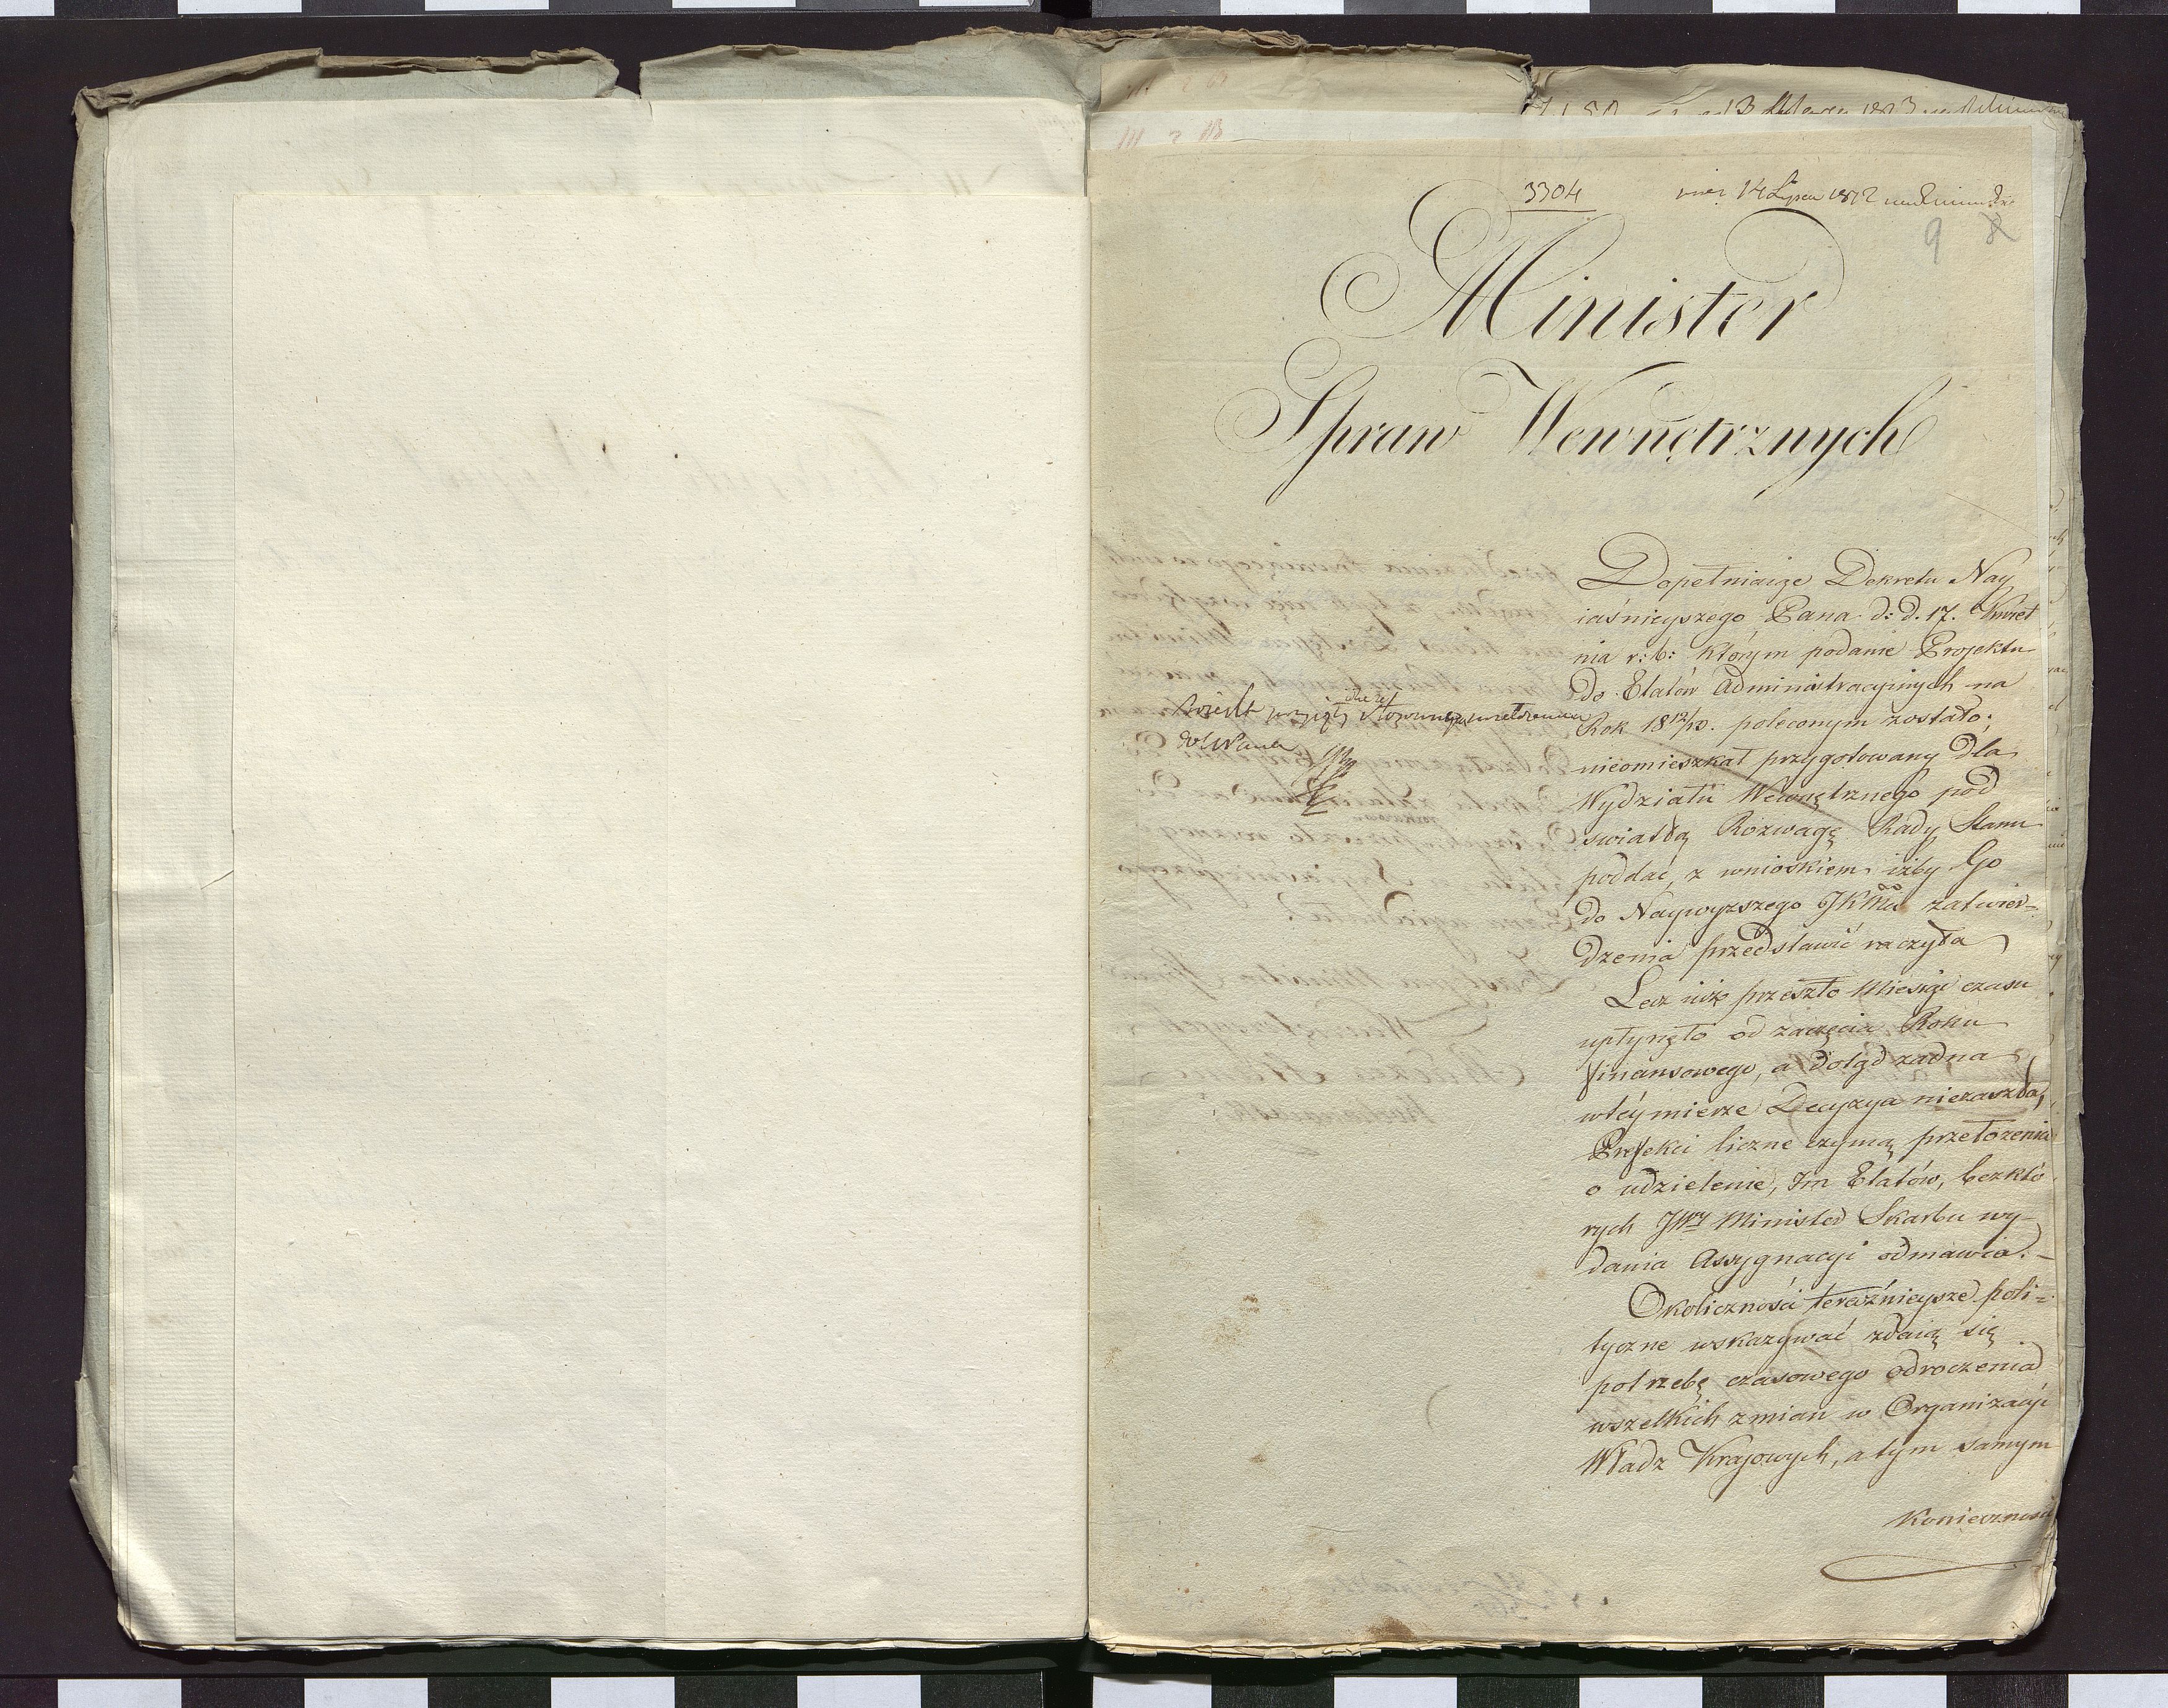 3304
14 Lipca 1812
9
Minister
Spraw Wewnętrznych
Dopełniaiąc Dekretu Nay
iaśnieyszego Pana d: d. 17. Kwiet
nia r: b: którym podanie Projektu
do Etatów Administracyinych na
Rok 18 12/13. poleconym zostało;
nieomieszkał przygotowany dla
Wydziału Wewnętrznego pod
swiatłą Rozwagę Rady Stanu
poddać, z wnioskiem iżby Go
do Naywyższego JKMci zatwier=
dzenia przedstawić raczyła
Lecz iuż przeszło Miesiąc czasu
upłynęło od zaczęcia Roku
finansowego, a dotąd żadna
wtéy mierze Decyzya niezaszła;
Prefekci liczne czynią przełożenia
o udzielenie, Im Etatów, bezktó
rych JWy Minister Skarbu wy-
dania Assygnacyi odmawia.-
Okoliczności teraźnieysze poli=
tyczne wskazywać zdaią się
potrzebę czasowego odroczenia
wszelkich zmian w Organizacyi
Władz Krajowych, a tym samym
Konieczność